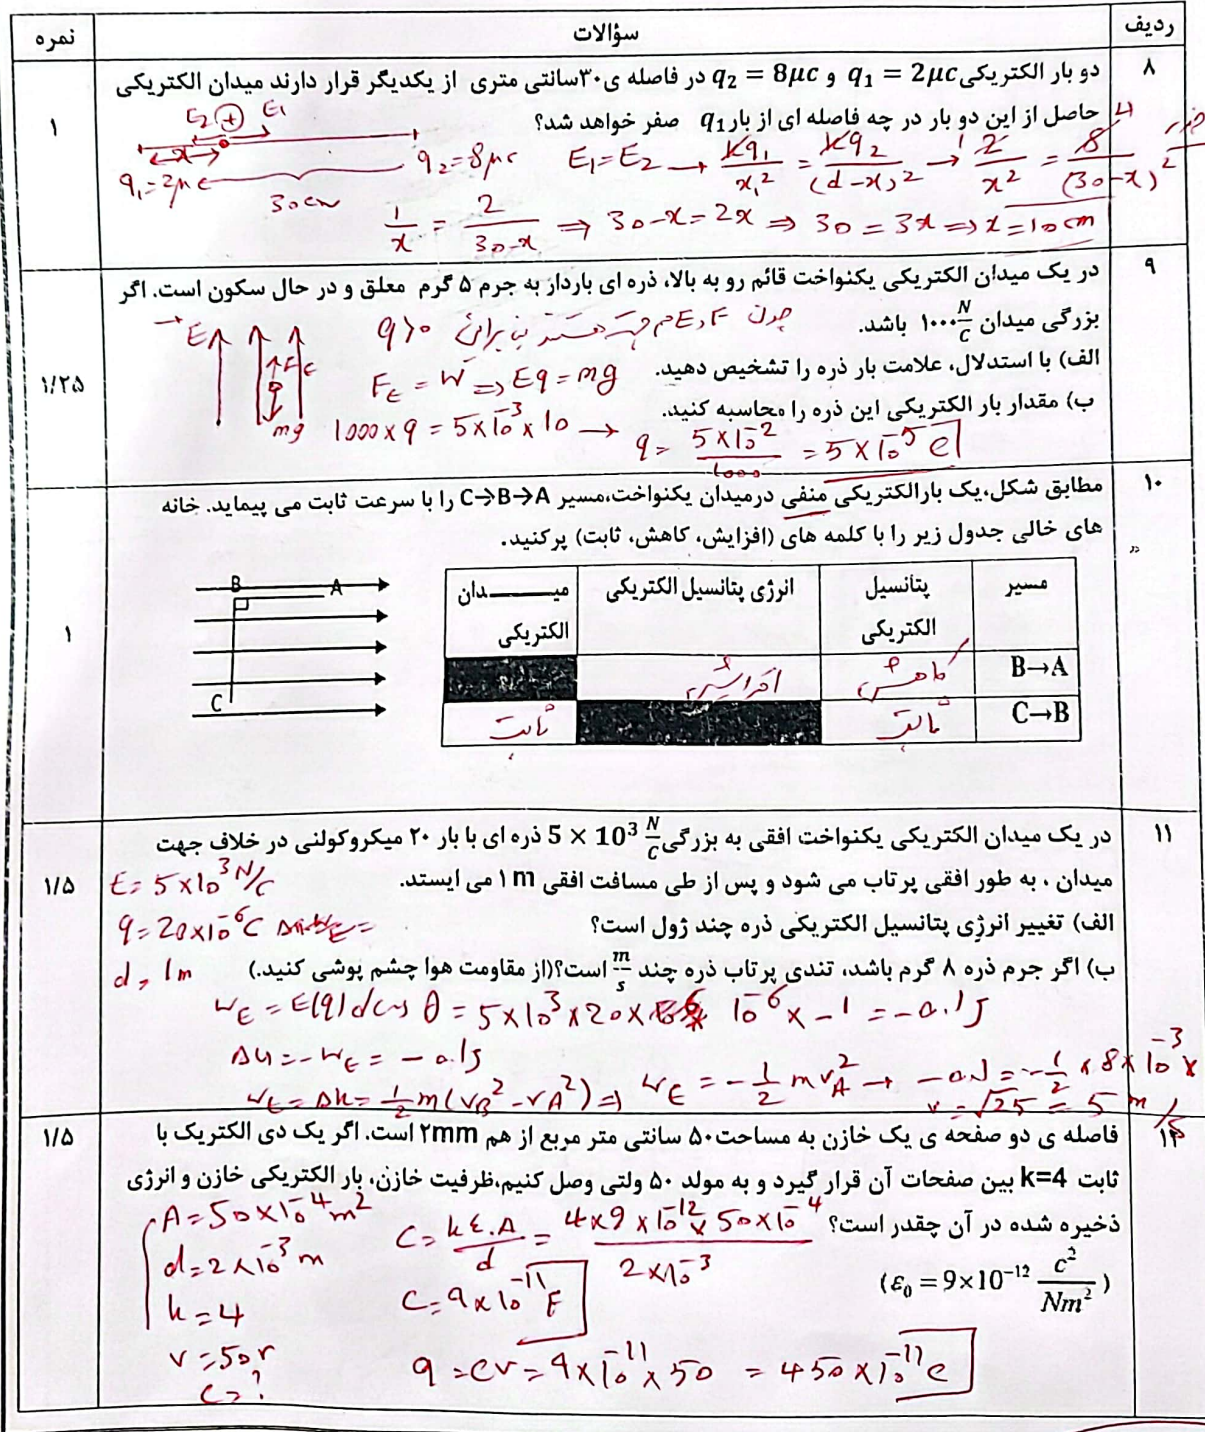 ردیف سؤالات نمره
۸ دو بار الکتریکی q₁ = 2μc و q₂ = 8μc در فاصله ی ۳۰سانتی متری از یکدیگر قرار دارند میدان الکتریکی
حاصل از این دو بار در چه فاصله ای از بار q₁ صفر خواهد شد؟
۱
E₂ (+) E₁
x
q₁=2μc q₂=8μc
30cm
E₁=E₂ → kq₁/x₁² = kq₂/(d-x)² → 2/x² = 8/(30-x)²
1/x = 2/(30-x) ⇒ 30-x=2x ⇒ 30=3x ⇒ x=10cm
۹ در یک میدان الکتریکی یکنواخت قائم رو به بالا، ذره ای باردار به جرم ۵ گرم معلق و در حال سکون است. اگر
بزرگی میدان ۱۰۰۰ N/C باشد.
چون F و E هم جهت هستند بنابراین q>0
الف) با استدلال، علامت بار ذره را تشخیص دهید.
۱/۲۵
E
F_E
mg
F_E = W ⇒ Eq = mg
ب) مقدار بار الکتریکی این ذره را محاسبه کنید.
1000×q = 5×10⁻³×10 → q = 5×10⁻²/1000 = 5×10⁻⁵ c
۱۰ مطابق شکل،یک بارالکتریکی منفی درمیدان یکنواخت،مسیر C→B→A را با سرعت ثابت می پیماید. خانه
های خالی جدول زیر را با کلمه های (افزایش، کاهش، ثابت) پرکنید.
۱
مسیر پتانسیل الکتریکی انرژی پتانسیل الکتریکی میـــــدان الکتریکی
B→A کاهش افزایش
C→B ثابت ثابت
B A
C
۱۱ در یک میدان الکتریکی یکنواخت افقی به بزرگی 5 × 10³ N/C ذره ای با بار ۲۰ میکروکولنی در خلاف جهت
میدان ، به طور افقی پرتاب می شود و پس از طی مسافت افقی ۱m می ایستد.
۱/۵
E= 5×10³ N/C
الف) تغییر انرژی پتانسیل الکتریکی ذره چند ژول است؟
q=20×10⁻⁶C
ب) اگر جرم ذره ۸ گرم باشد، تندی پرتاب ذره چند m/s است؟(از مقاومت هوا چشم پوشی کنید.)
d=1m
W_E = E|q|d cos θ = 5×10³×20× 10⁻⁶ × -1 = -0.1J
Δu=-W_E = -0.1J
W_E=Δk=1/2 m(v_B²-v_A²) ⇒ W_E = -1/2 mv_A² → -0.1=-1/2×8×10⁻³×
v=√25 = 5 m/s
۱۲ فاصله ی دو صفحه ی یک خازن به مساحت۵۰ سانتی متر مربع از هم ۲mm است. اگر یک دی الکتریک با
۱/۵
ثابت k=4 بین صفحات آن قرار گیرد و به مولد ۵۰ ولتی وصل کنیم،ظرفیت خازن، بار الکتریکی خازن و انرژی
ذخیره شده در آن چقدر است؟
(ε₀ = 9×10⁻¹² c²/Nm²)
A=50×10⁻⁴m²
d=2×10⁻³m
k=4
v=50v
c=?
C=kε₀A/d = 4×9×10⁻¹²×50×10⁻⁴/2×10⁻³
C=9×10⁻¹¹F
q=cv=9×10⁻¹¹×50 = 450×10⁻¹¹c